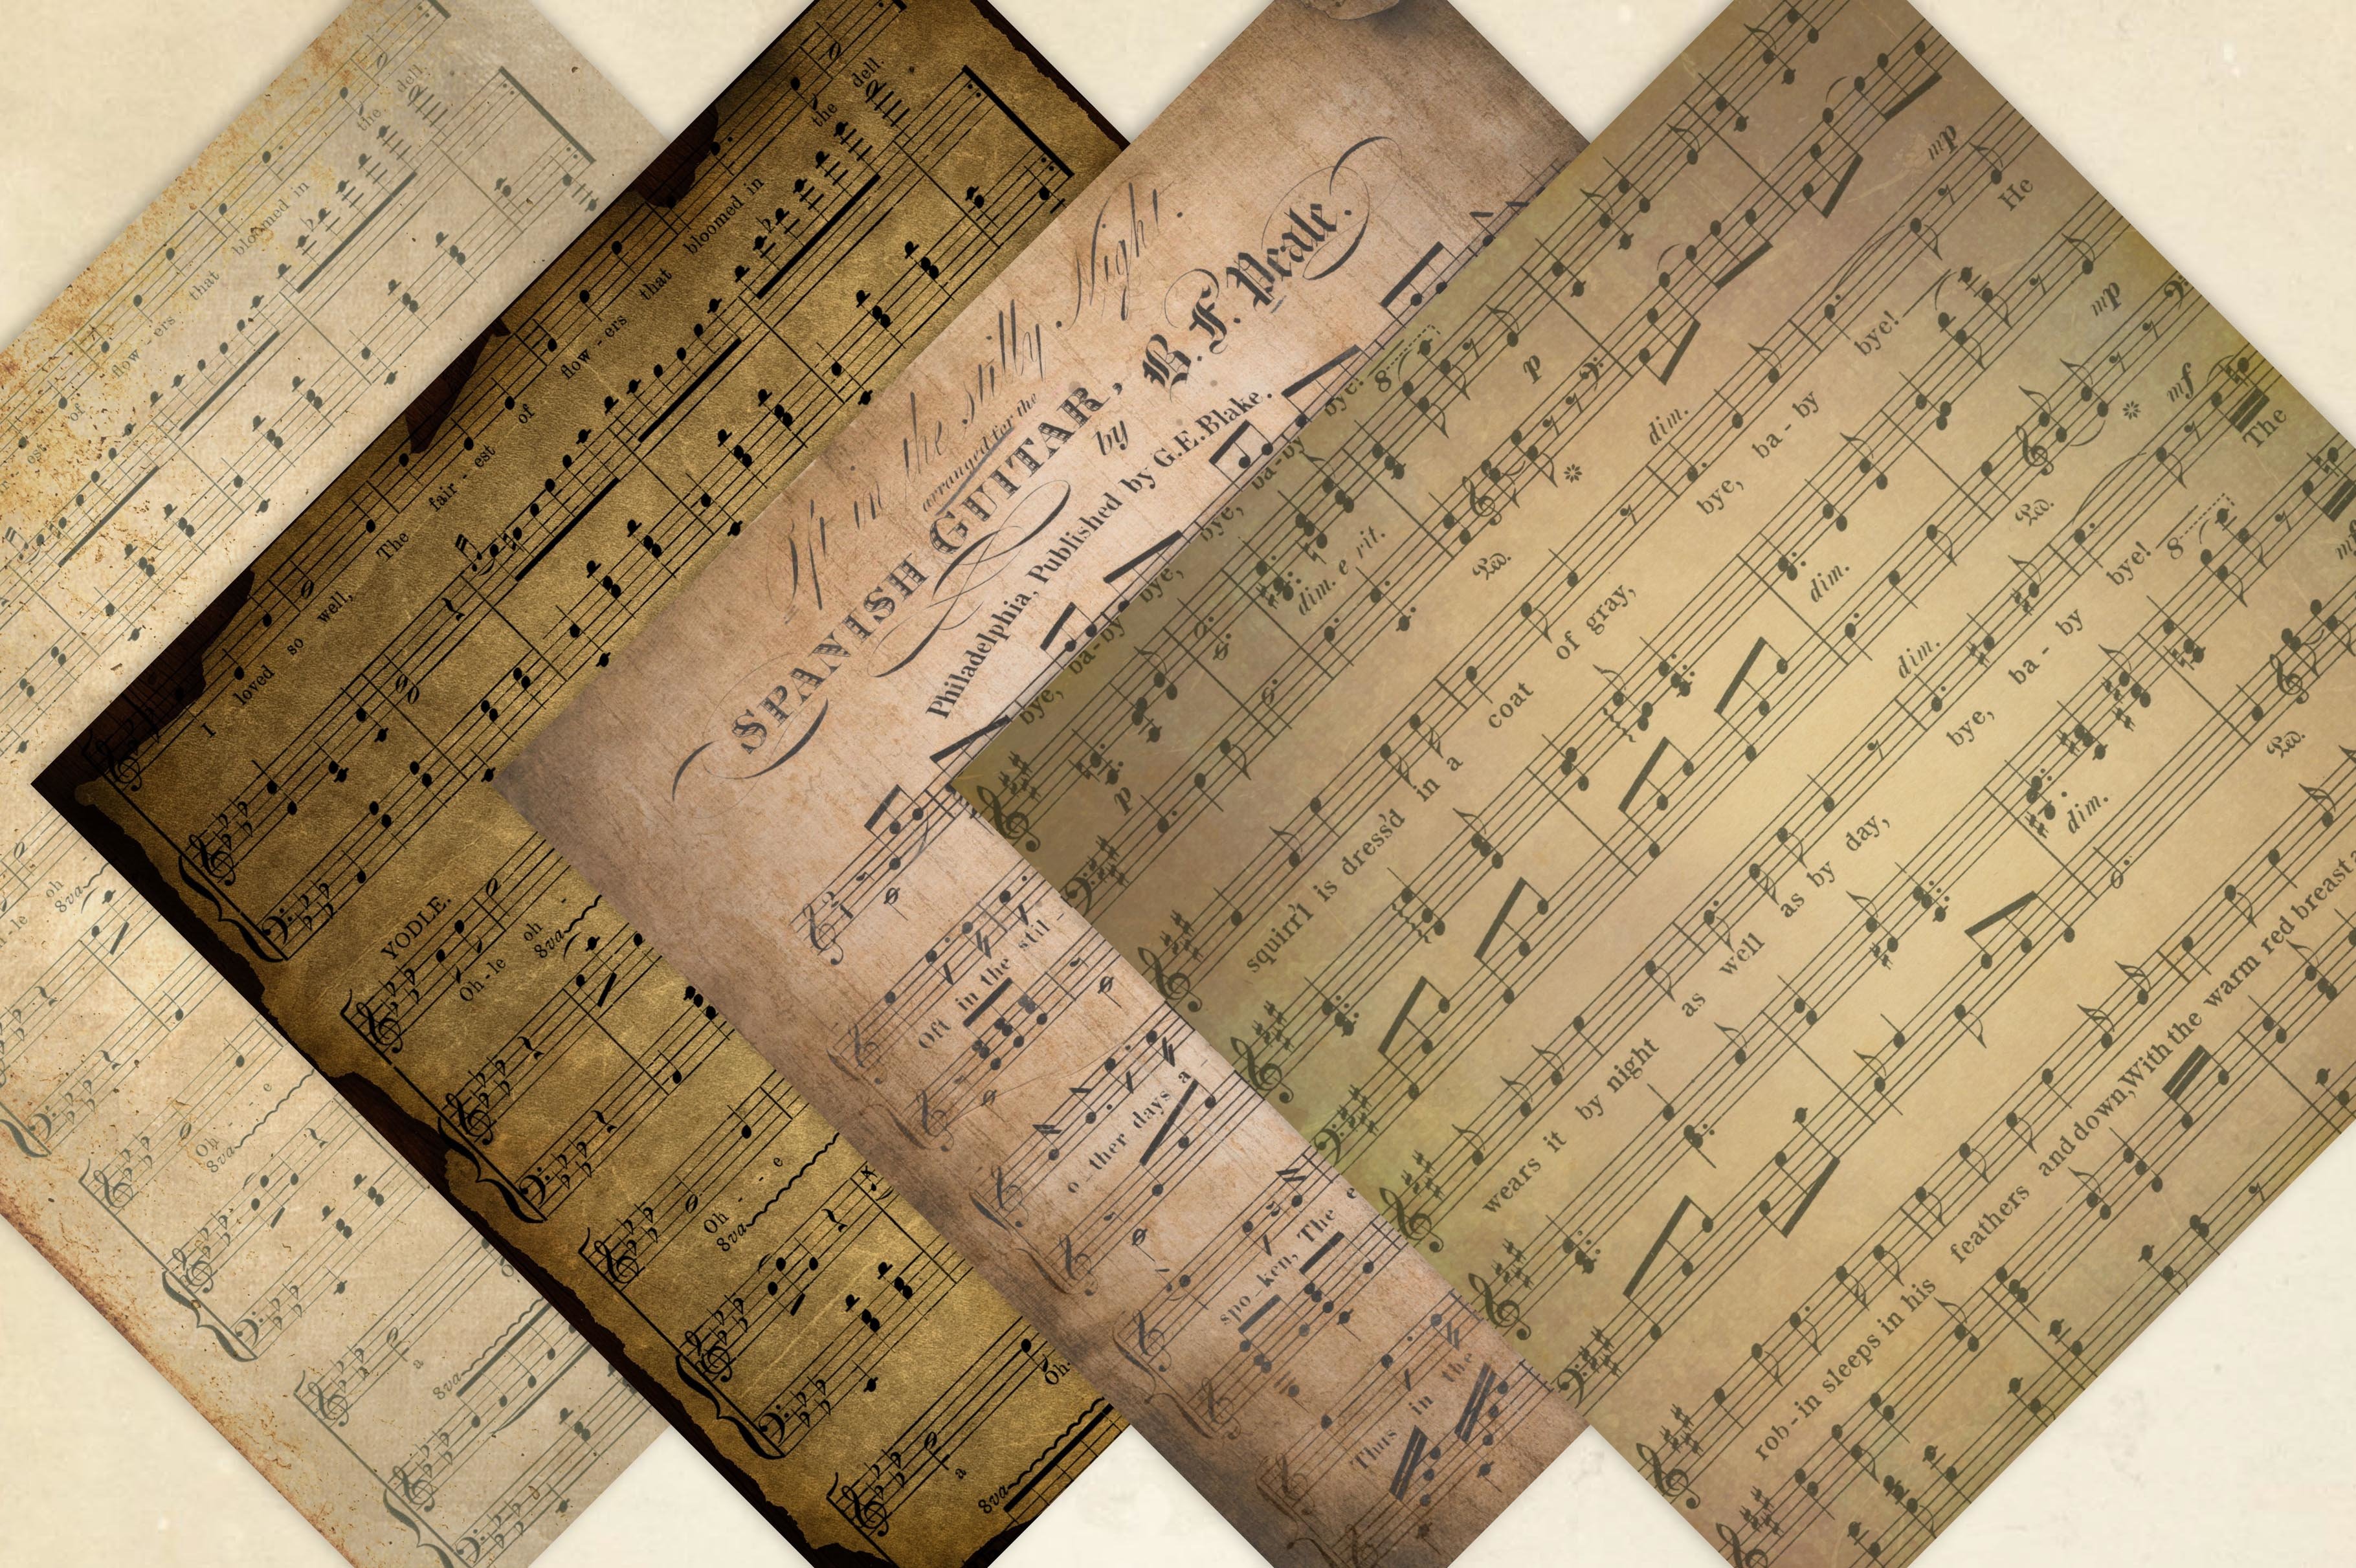 dell.
the
bloomed in
that
flow - ers
of
est
oh
8va
h-le
Oh
e
8va
a
8va
I loved so well, The fair - est of flow - ers that bloomed in the dell.
YODLE.
Oh-le oh
8va
Oh - - e
8va
Oh-
a
8va
Oft in the stilly Night.
arranged for the
SPANISH GUITAR,
by
B. F. Peale.
Philadelphia, Published by G.E.Blake.
Oft in the stil -
o - ther days a
spo ken, The e
Thus in the
mp
He
bye, ba-by bye, bye, ba-by bye!
8
p
dim. e rit.
p
Ped.
mp
squirr'l is dress'd in a coat of gray,
bye, ba - by bye!
dim.
dim.
Ped.
mf
The
wears it by night as well as by day,
bye, ba - by bye!
8
dim.
dim.
mf
Ped.
rob-in sleeps in his feathers and down, With the warm red breast